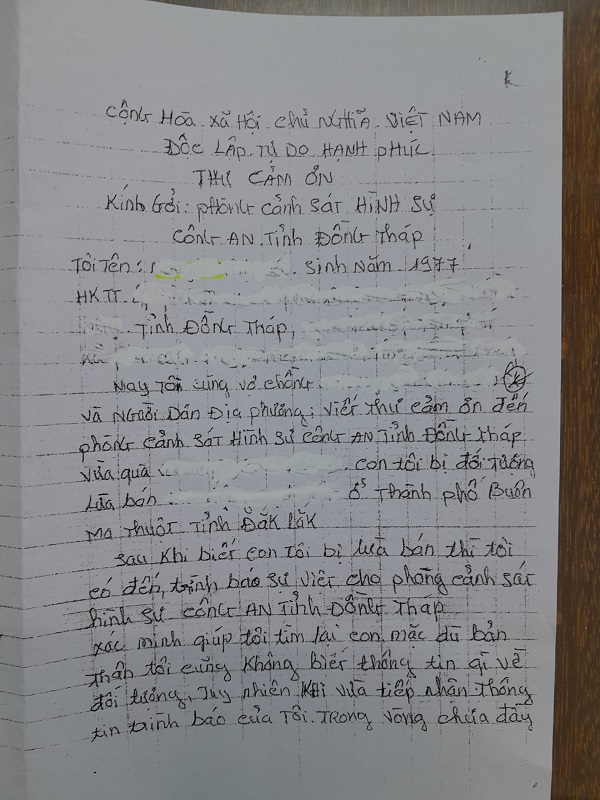 K
CỘNG HÒA XÃ HỘI CHỦ NGHĨA VIỆT NAM
ĐỘC LẬP TỰ DO HẠNH PHÚC
THƯ CẢM ƠN
Kính Gởi: phòng cảnh sát HÌNH SỰ
CÔNG AN TỈNH ĐỒNG Tháp
Tôi Tên: sinh Năm 1977
HKTT
Tỉnh ĐỒNG Tháp,
Nay Tôi cùng vợ chồng
và Người Dân Địa phương; viết thư cảm ơn đến
phòng cảnh sát Hình sự công AN Tỉnh ĐỒNG Tháp
vừa qua con tôi bị đối tượng
Lừa bán ở Thành phố Buôn
Ma Thuột Tỉnh ĐăK LăK
Sau khi biết con tôi bị lừa bán thì tôi
có đến, trình báo sự việc cho phòng cảnh sát
hình sự công AN Tỉnh ĐỒNG Tháp
xác minh giúp tôi tìm lại con, mặc dù bản
thân tôi cũng không biết thông tin gì về
đối tượng, Tuy nhiên khi vừa tiếp nhận thông
tin trình báo của tôi. Trong vòng chưa đầy